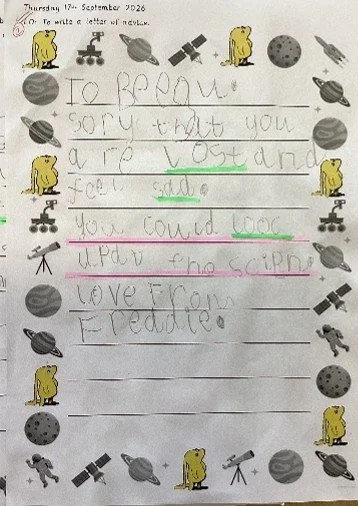 Thursday 17th September 2026
L.O: To write a letter of advice.
To Beegu.
sory that you
are lost and
feel sad.
you could looc
up at the scien
love From
Freddie.